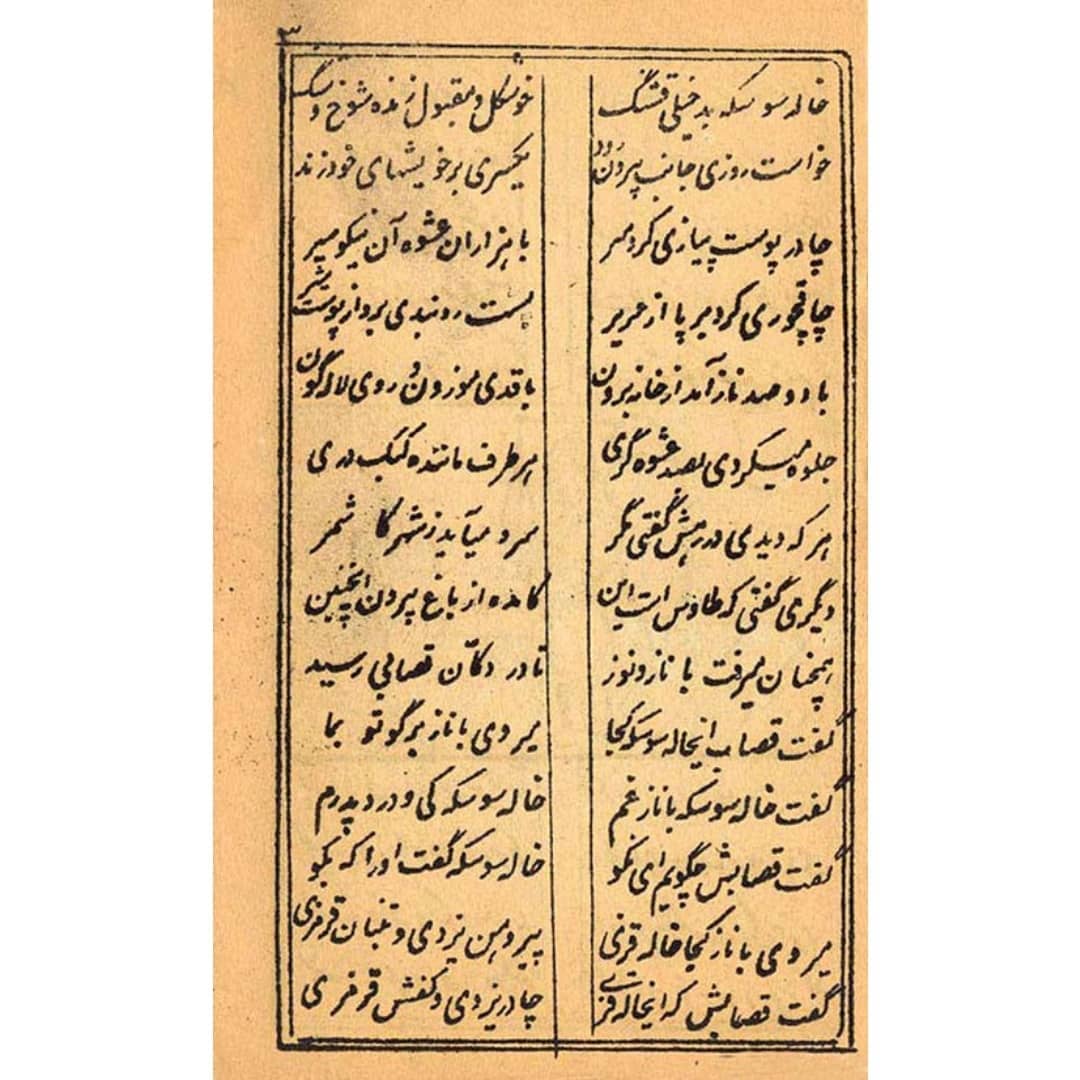 ۳
خاله سوسکه بد خیلی قشنگ
خوشگل و مقبول زنده شوخ و سنگ
خواست روزی جانب بیرون رود
یکسری بر خویشهای خود زند
چادر پوست پیازی کرد سر
با هزاران عشوه آن نیکو سیر
چاقچوری کرد بر پا از حریر
بست روبندی برو از پوست
با دو صد ناز آمد از خانه برون
با قدی موزون و روی لاله گون
جلوه میکردی بصد عشوه گری
هر طرف ماننده کبک دری
هر که دیدی در رهش گفتی نگر
سرو میآید ز شهر کاشمر
دیگری گفتی که طاوس است این
کامده از باغ بیرون اینچنین
همچنان میرفت با ناز و نوز
تا در دکّان قصابی رسید
گفت قصاب ایخاله سوسکو کجا
میروی با ناز برگو تو بما
گفت خاله سوسکه با ناز غم
خاله سوسکه کی و درد پدرم
گفت قصابش چگویم ای نکو
خاله سوسکه گفت او را که بگو
میروی با ناز کجا خاله قزی
پیرهن یزدی و تنبان قرمزی
گفت قصابش که ایخاله قزی
چادر یزدی و کفش قرمزی